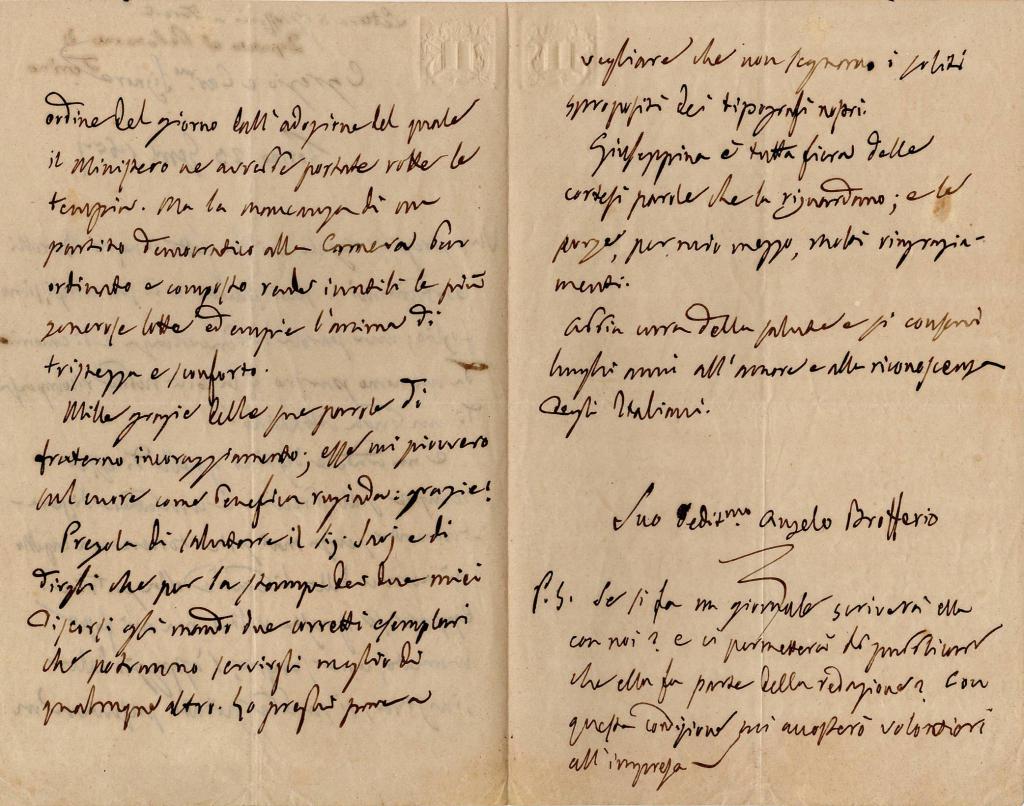 ordine del giorno dall'adozione del quale
il Ministero ne avrebbe portate rotte le
tempia. Ma la mancanza di un
partito democratico alla Camera ben
ordinato e composto rende inutili le più
generose lotte ed empie l'anima di
tristezza e sconforto.
Mille grazie delle sue parole di
fraterno incoraggiamento; esse mi piovvero
sul cuore come benefica rugiada: grazie!
Pregola di salutarre il Sig. e di
dirgli che per la stampa dei due miei
Discorsi gli mando due corretti esemplari
che potranno servirgli meglio di
qualunque altro. Lo preghi pure a
vegliare che non seguano i soliti
spropositi dei tipografi nostri.
Giuseppina è tutta fiera delle
cortesi parole che la riguardano; e le
porge, per mio mezzo, molti ringrazia-
menti.
Abbia cura della salute e si conservi
lunghi anni all'amore e alla riconoscenza
degli Italiani.
Suo dedit.mo Angelo Brofferio
P.S. Se si fa un giornale scriverà ella
con noi? e ci permetterà di pubblicare
che ella fa parte della redazione? Con
questa condizione mi accosterò volontieri
all'impresa